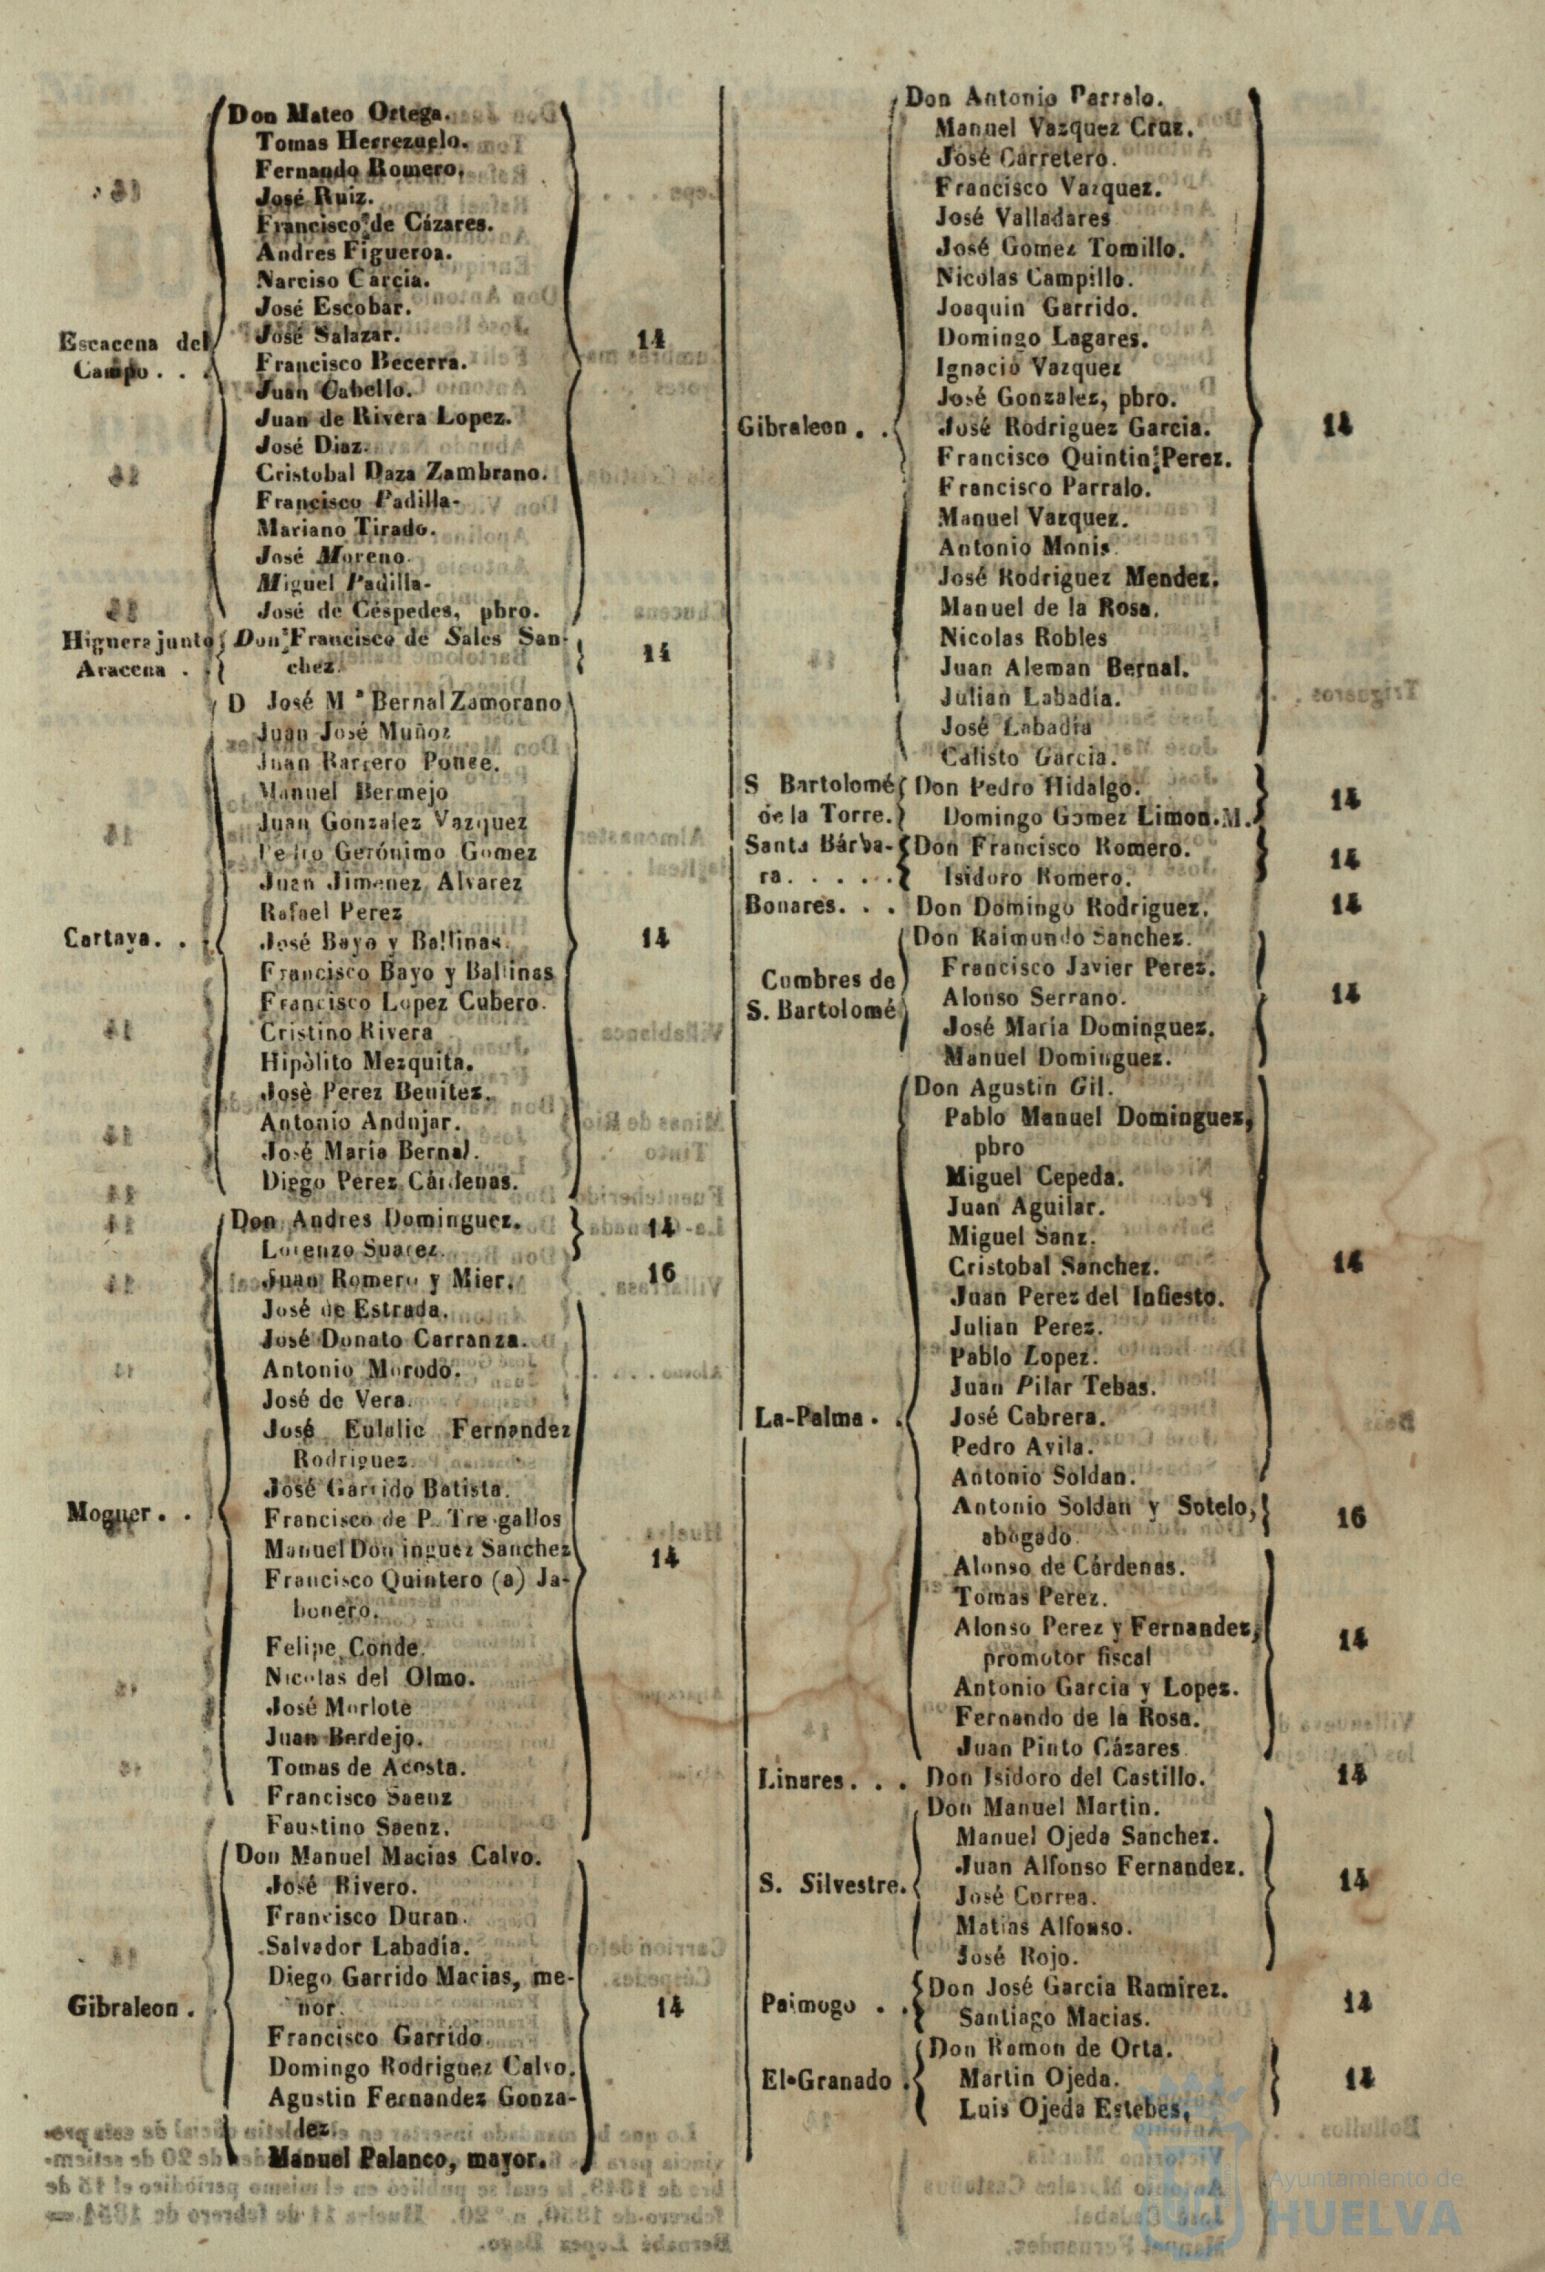 Don Mateo Ortega.
Tomas Herrezuelo.
Fernando Romero.
José Ruiz.
Francisco de Cázares.
Andres Figueroa.
Narciso Carcia.
José Escobar.
Escacena del José Salazar. 14
Campo . . . Francisco Becerra.
Juan Cabello.
Juan de Rivera Lopez.
José Diaz.
Cristobal Daza Zambrano.
Francisco Padilla-
Mariano Tirado.
José Moreno.
Miguel Padilla-
José de Céspedes, pbro.
Higuera junto Don Francisco de Sales San-
Aracena . . chez. 14
D José M.ª Bernal Zamorano
Juan José Muñoz
Juan Barrero Ponce.
Manuel Bermejo
Juan Gonzalez Vazquez
Pedro Gerónimo Gomez
Juan Jimenez Alvarez
Rafael Perez
Cartaya. . . José Bayo y Ballinas. 14
Francisco Bayo y Ballinas
Francisco Lopez Cubero.
Cristino Rivera
Hipòlito Mezquita.
Josè Perez Benitez.
Antonio Andujar.
José María Bernal.
Diego Perez Cárdenas.
Don Andres Dominguez. 14
Lorenzo Suarez.
Juan Romero y Mier. 16
José de Estrada.
José Donato Carranza.
Antonio Morodo.
José de Vera.
José Eulalio Fernandez
Rodriguez.
José Garrido Batista.
Moguer. . Francisco de P. Tresgallos
Manuel Dominguez Sanchez 14
Francisco Quintero (a) Ja-
bonero.
Felipe Conde.
Nicolas del Olmo.
José Morlote
Juan Berdejo.
Tomas de Acosta.
Francisco Saenz
Faustino Saenz.
Don Manuel Macias Calvo.
José Rivero.
Francisco Duran.
Salvador Labadía.
Diego Garrido Macias, me-
Gibraleon . nor. 14
Francisco Garrido.
Domingo Rodriguez Calvo.
Agustin Fernandez Gonza-
lez.
Manuel Palanco, mayor.
Don Antonio Parralo.
Manuel Vazquez Cruz.
José Carretero.
Francisco Vazquez.
José Valladares
José Gomez Tomillo.
Nicolas Campillo.
Joaquin Garrido.
Domingo Lagares.
Ignacio Vazquez
José Gonzalez, pbro.
Gibraleon . . José Rodriguez Garcia. 14
Francisco Quintin Perez.
Francisco Parralo.
Manuel Vazquez.
Antonio Monis.
José Rodriguez Mendez.
Manuel de la Rosa.
Nicolas Robles
Juan Aleman Bernal.
Julian Labadía.
José Labadía
Calisto Garcia.
S Bartolomé Don Pedro Hidalgo. 14
de la Torre. Domingo Gomez Limon.M.
Santa Bárba- Don Francisco Romero. 14
ra. . . . . . Isidoro Romero.
Bonares. . . Don Domingo Rodriguez. 14
Don Raimundo Sanchez.
Cumbres de Francisco Javier Perez.
S. Bartolomé Alonso Serrano. 14
José María Dominguez.
Manuel Dominguez.
Don Agustin Gil.
Pablo Manuel Dominguez,
pbro
Miguel Cepeda.
Juan Aguilar.
Miguel Sanz.
Cristobal Sanchez. 14
Juan Perez del Infiesto.
Julian Perez.
Pablo Lopez.
Juan Pilar Tebas.
La-Palma . . José Cabrera.
Pedro Avila.
Antonio Soldan.
Antonio Soldan y Sotelo, 16
abogado.
Alonso de Cárdenas.
Tomas Perez.
Alonso Perez y Fernandez, 14
promotor fiscal
Antonio Garcia y Lopez.
Fernando de la Rosa.
Juan Pinto Cázares
Linares. . . Don Isidoro del Castillo. 14
Don Manuel Martin.
Manuel Ojeda Sanchez.
Juan Alfonso Fernandez.
S. Silvestre. José Correa. 14
Matias Alfonso.
José Rojo.
Paimogo . . Don José Garcia Ramirez. 14
Santiago Macias.
Don Ramon de Orta.
El-Granado . Martin Ojeda. 14
Luis Ojeda Estebes,
Ayuntamiento de
HUELVA